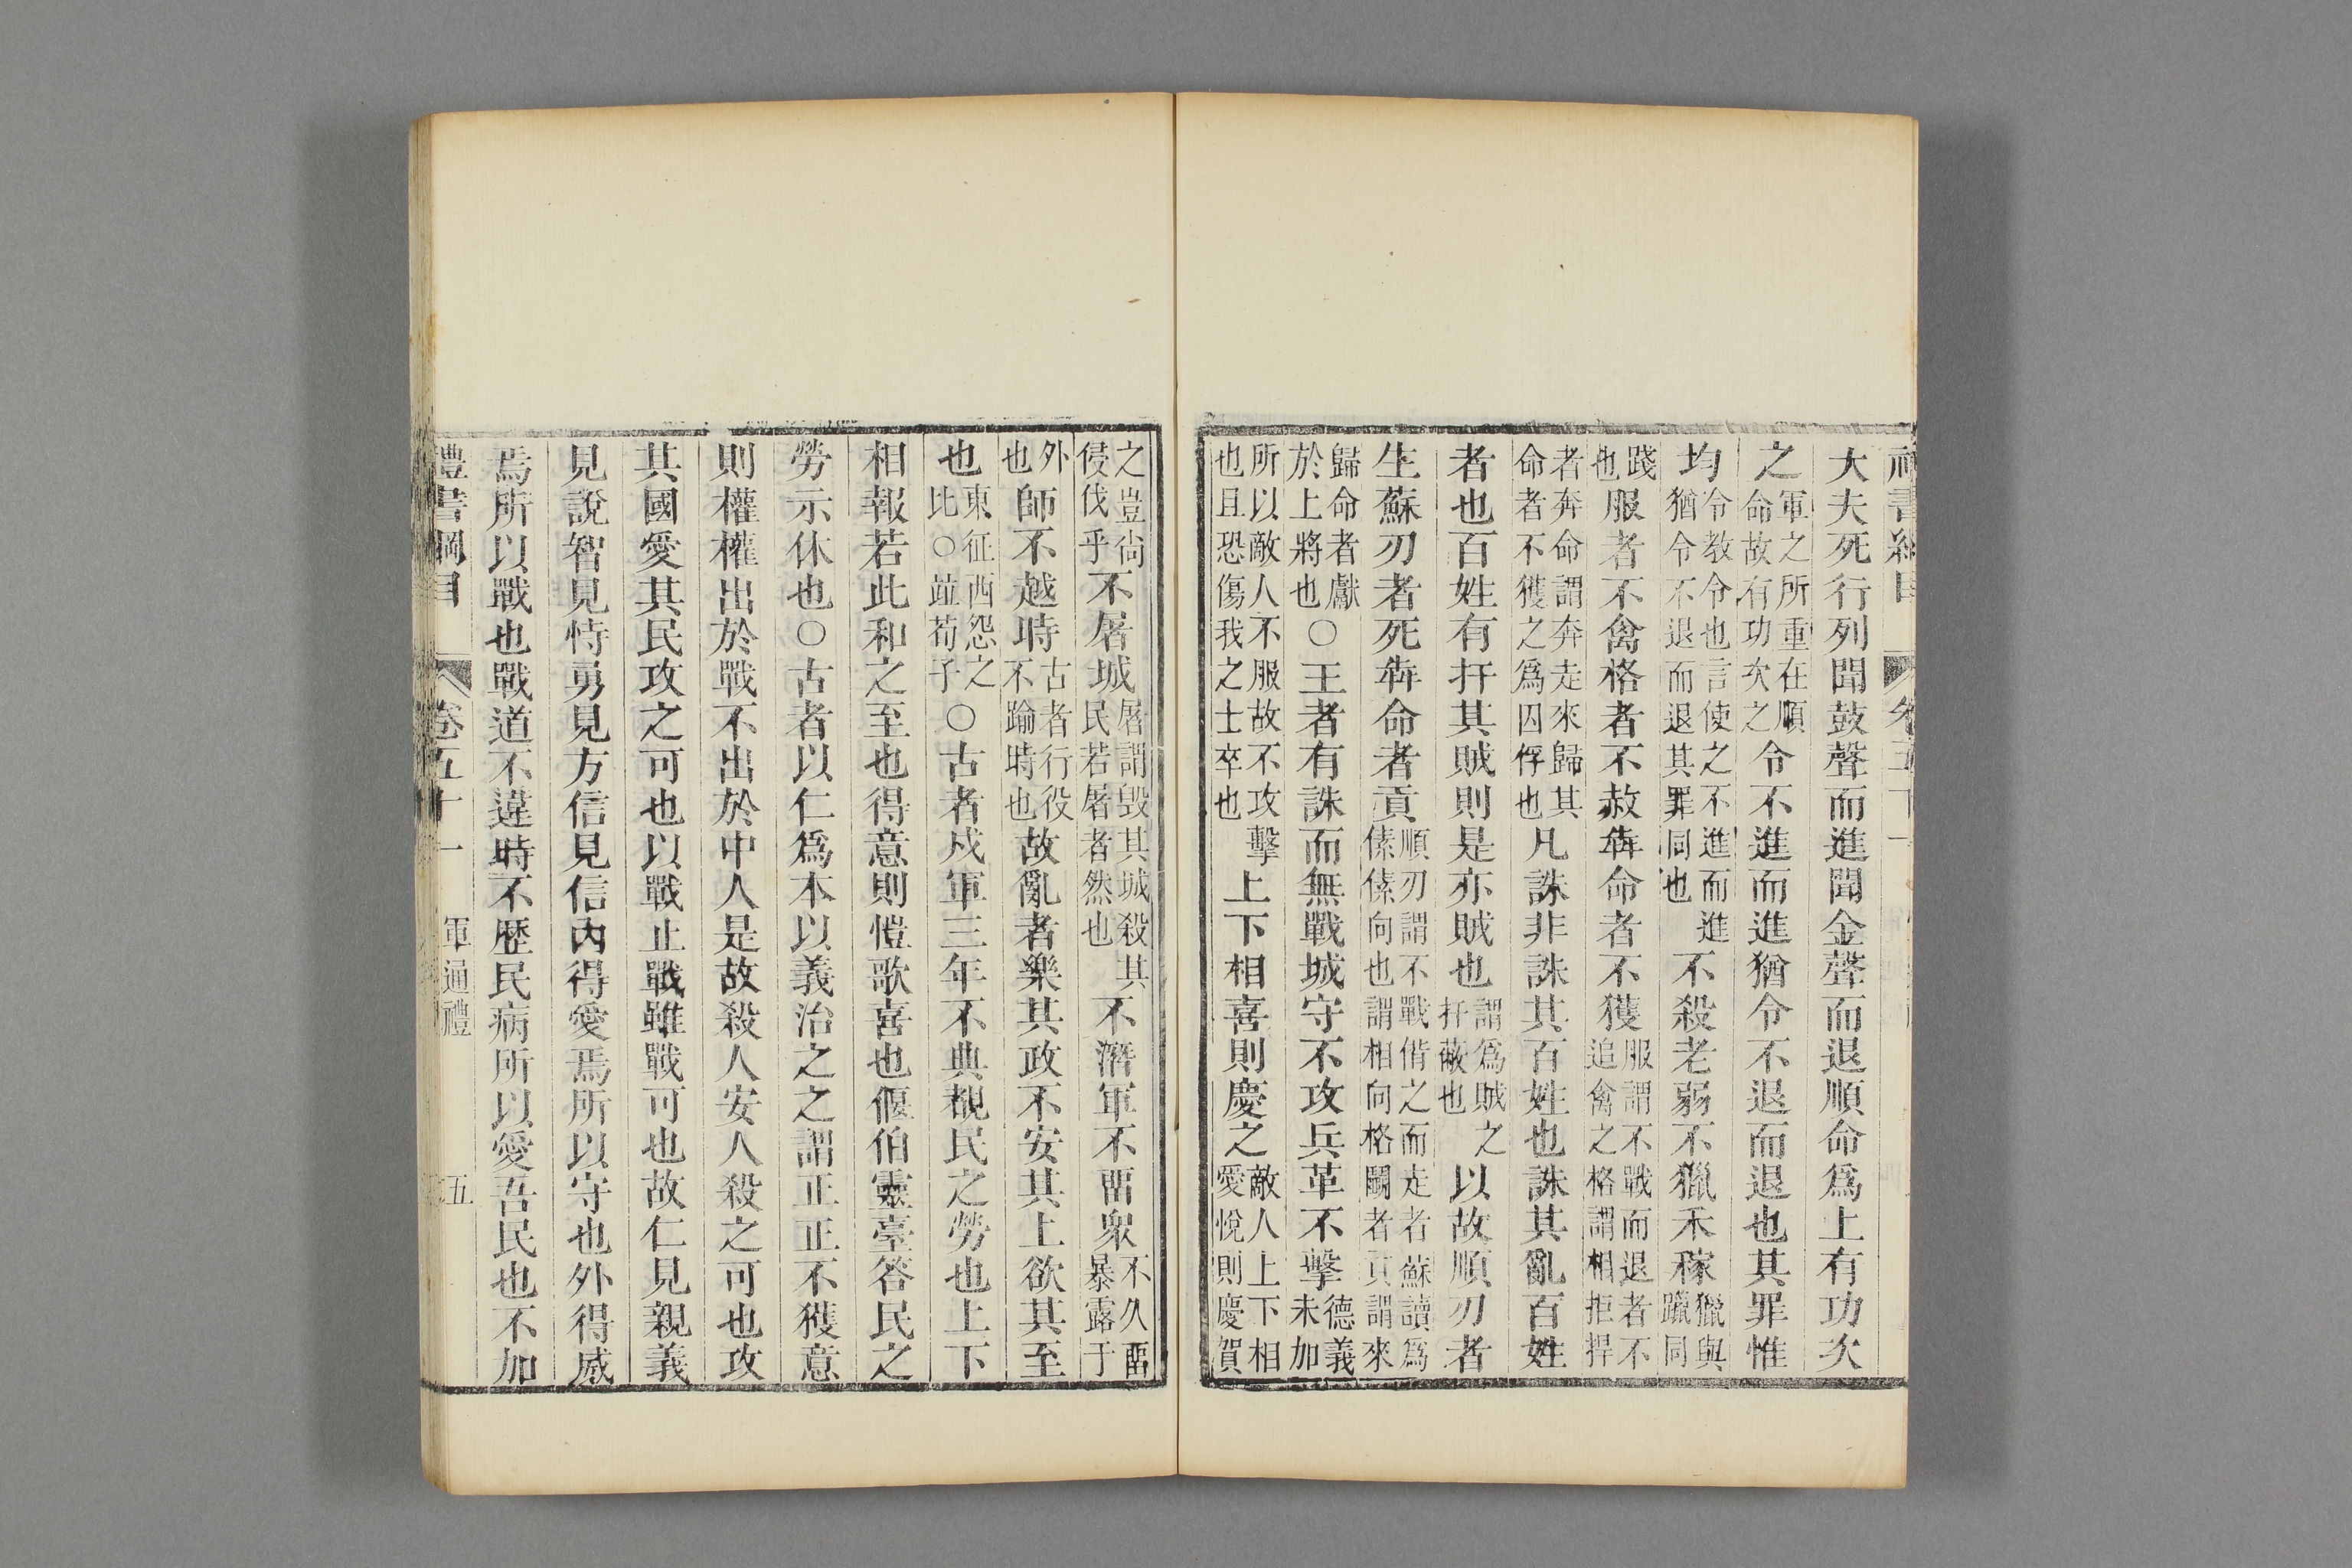 大夫死行列聞鼓聲而進聞金聲而退順命爲上有功次
之軍之所重在順命故有功次之令不進而進猶令不退而退也其罪惟
均令教令也言使之不進而進猶令不退而退其罪同也不殺老弱不獵禾稼獵與躐同
踐也服者不禽格者不赦犇命者不獲服謂不戰而退者不追禽之格謂相拒捍
者奔命謂奔走來歸其命者不獲之爲囚俘也凡誅非誅其百姓也誅其亂百姓
者也百姓有扞其賊則是亦賊也謂爲賊之扞蔽也以故順刃者
生蘇刃者死犇命者貢順刃謂不戰偝之而走者蘇讀爲傃傃向也謂相向格鬭者貢謂來
歸命者獻於上將也○王者有誅而無戰城守不攻兵革不擊德義未加
所以敵人不服故不攻擊也且恐傷我之士卒也上下相喜則慶之敵人上下相愛悅則慶賀
之豈尚侵伐乎不屠城屠謂毀其城殺其民若屠者然也不潛軍不畱衆不久畱暴露于
外也師不越時古者行役不踰時也故亂者樂其政不安其上欲其至
也東征西怨之比○竝荀子○古者戍軍三年不典覩民之勞也上下
相報若此和之至也得意則愷歌喜也偃伯靈臺答民之
勞示休也○古者以仁爲本以義治之之謂正正不獲意
則權權出於戰不出於中人是故殺人安人殺之可也攻
其國愛其民攻之可也以戰止戰雖戰可也故仁見親義
見說智見恃勇見方信見信內得愛焉所以守也外得威
焉所以戰也戰道不違時不歷民病所以愛吾民也不加
禮書綱目 卷五十一 軍通禮 五